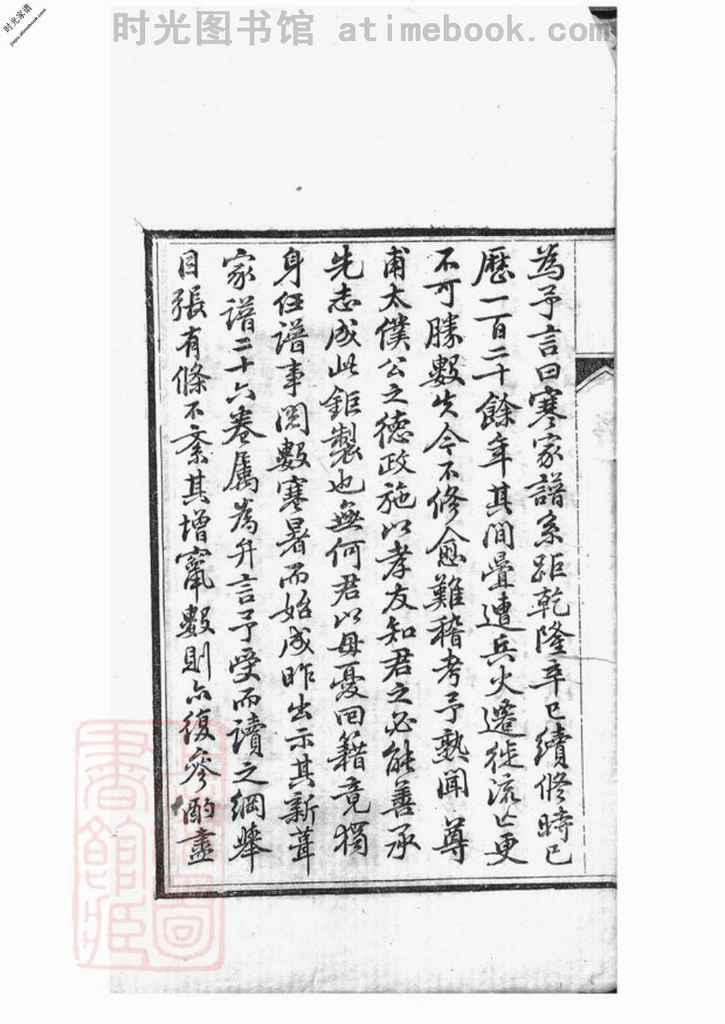 时光图书馆 atimebook.com
时光家谱
為予言曰寒家譜系距乾隆辛巳續修時已
歷一百二十餘年其間疊遭兵火遷徙流亡更
不可勝數失今不修愈難稽考予熟聞尊
甫太僕公之德政施以孝友知君之必能善承
先志成此鉅製也無何君以母憂回籍竟獨
身任譜事閱數寒暑而始成昨出示其新葺
家譜二十六卷屬為弁言予受而讀之綱舉
目張有條不紊其增竄數則亦復參酌盡
圖書館藏